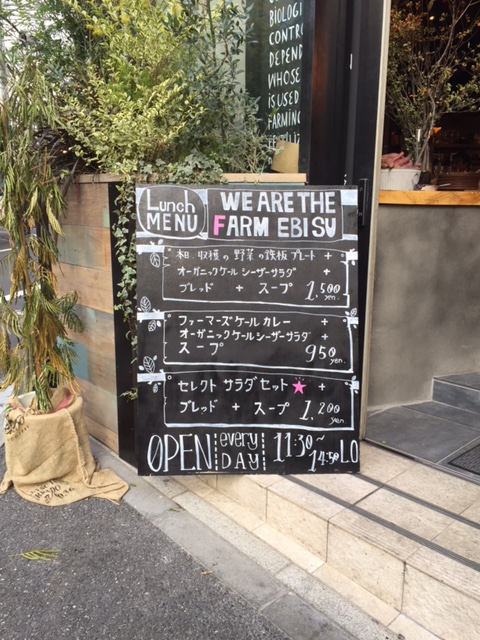 BIOLOGI
CONTRO
DEPEND
WHOSE
IS USED
FARMING
Lunch
MENU
WE ARE THE
FARM EBISU
本日、収穫の野菜の鉄板プレート +
オーガニックケールシーザーサラダ +
ブレッド + スープ 1,500
yen.
ファーマーズケールカレー +
オーガニックケールシーザーサラダ +
スープ 950
yen.
セレクトサラダセット★ +
ブレッド + スープ 1,200
yen
OPEN every DAY 11:30~14:50 LO